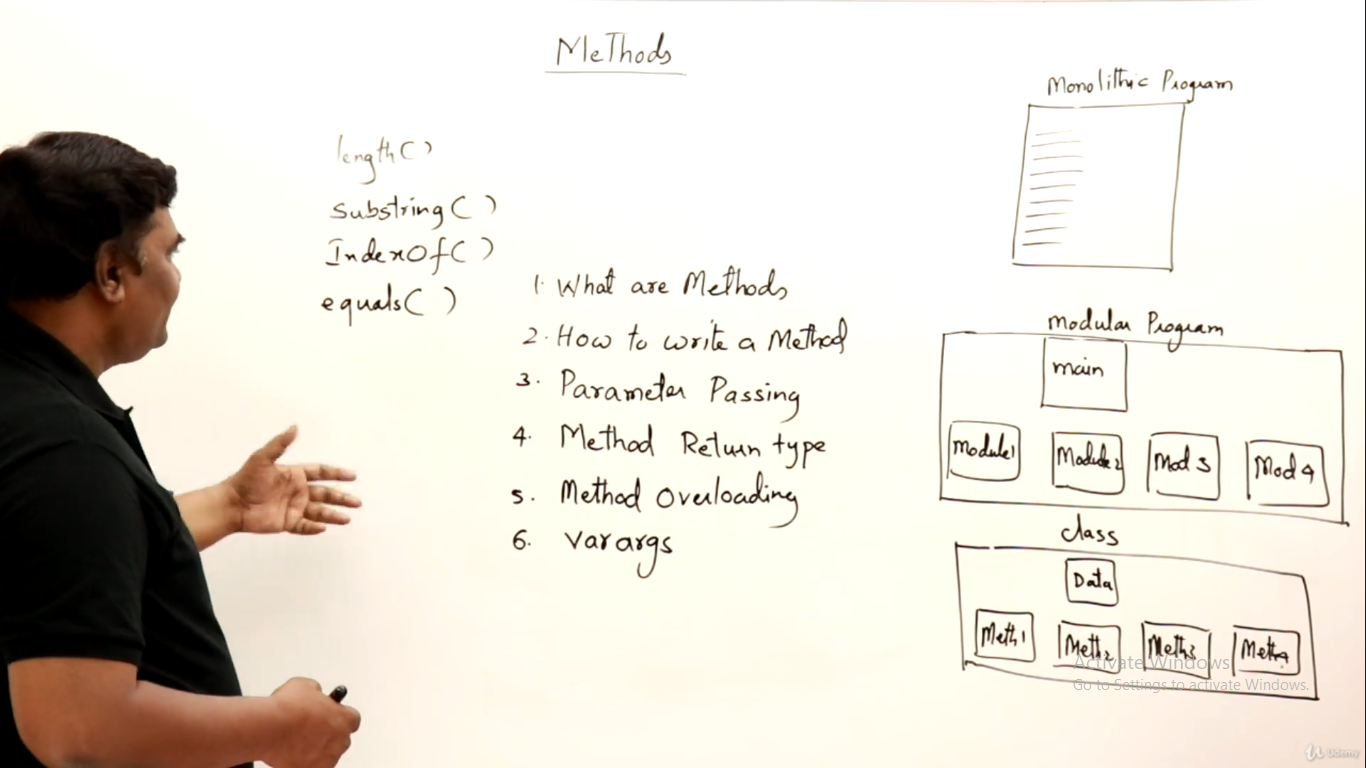 Methods
length()
Substring()
IndexOf()
equals()
1. What are Methods
2. How to write a Method
3. Parameter Passing
4. Method Return type
5. Method Overloading
6. Varargs
Monolithic Program
Modular Program
main
Module1
Module2
Mod 3
Mod 4
class
Data
Meth1
Meth2
Meth3
Meth4
Activate Windows
Go to Settings to activate Windows.
Udemy